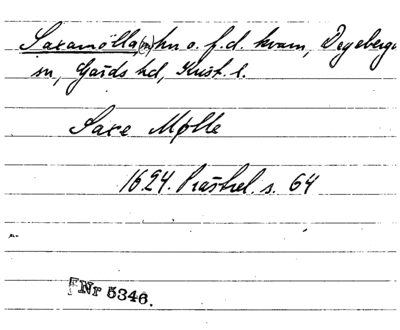 Saxamölla(n) hn o. f.d. kvarn, Degeberga
sn, Gärds hd, Krist. l.
Saxe Mølle
1624. Prästrel. s. 64
Nr 5346.